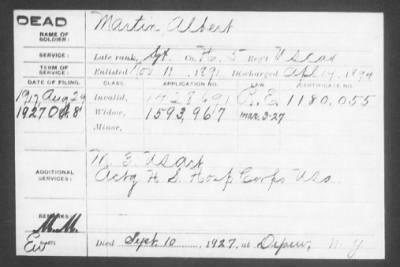 DEAD
NAME OF SOLDIER: Martin Albert
SERVICE: Late rank, Sgt. Co. H. 5 Reg't U S Cav
TERM OF SERVICE: Enlisted 11, 1891 Discharged Apl 17, 1894
DATE OF FILING. CLASS. APPLICATION NO. LAW. CERTIFICATE NO.
1917 Aug 29 Invalid, 1428691 1180.055
1927 Oct. 8 Widow, 1593,967 mar. 3-27
Minor,
ADDITIONAL SERVICES: U S Art
Actg H S Hosp Corps Usa
REMARKS
Died Sept. 10, 1927, at Depew, N. Y